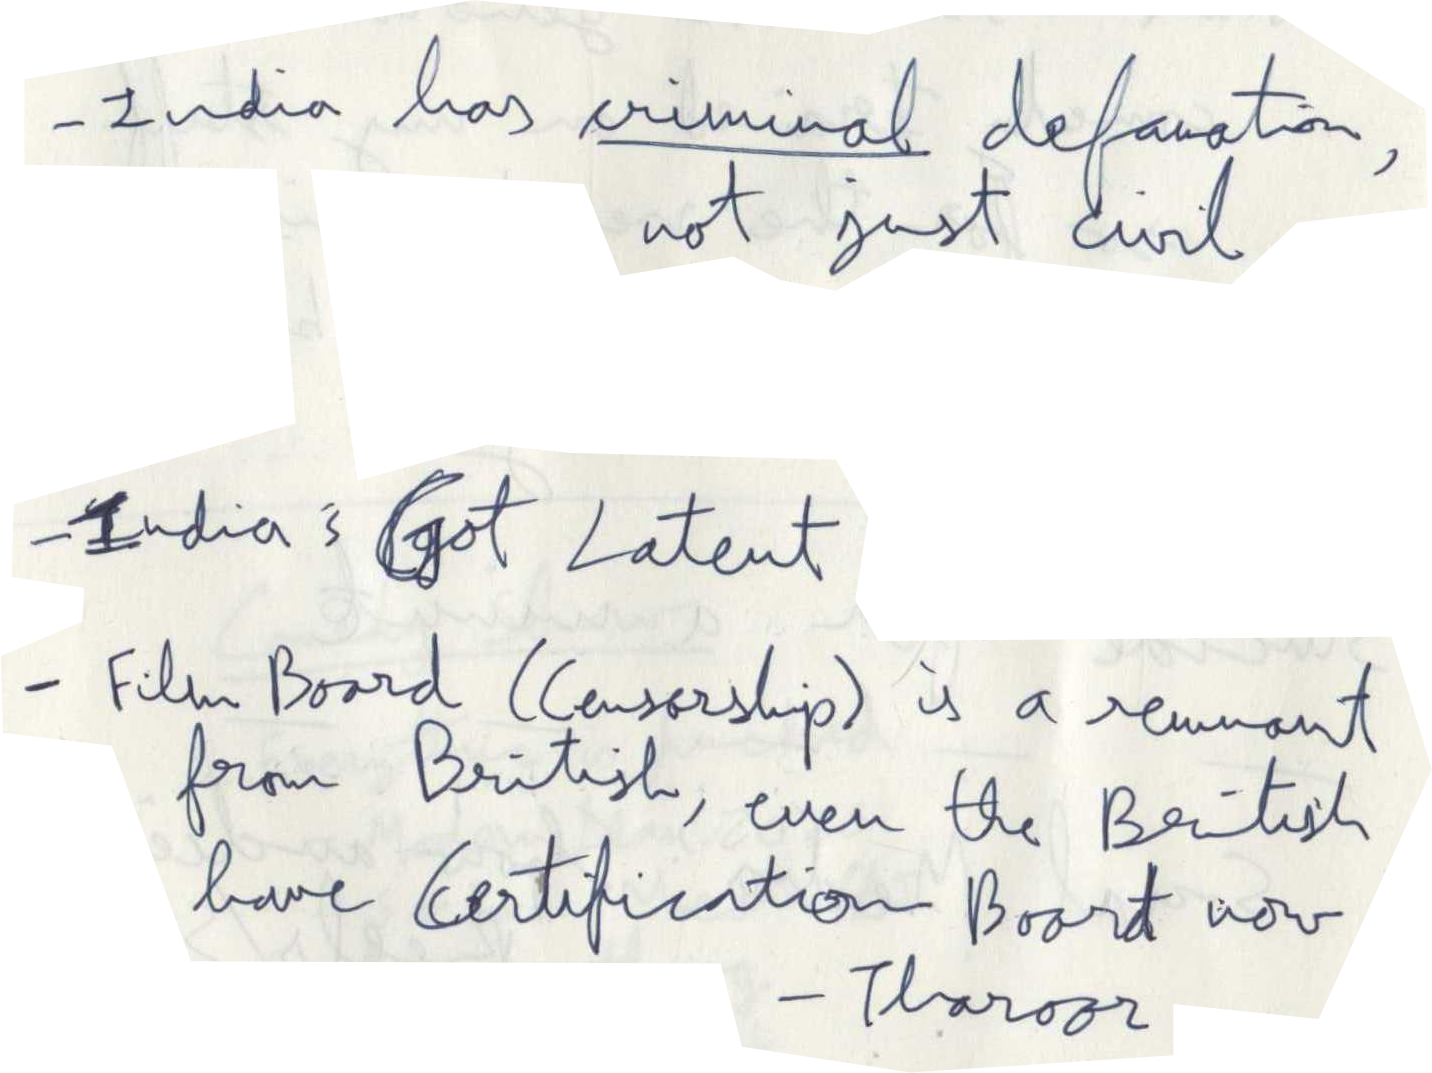 - India has criminal defamation,
not just civil
- India's Got Latent
- Film Board (Censorship) is a remnant
from British, even the British
have Certification Board now
- Tharoor